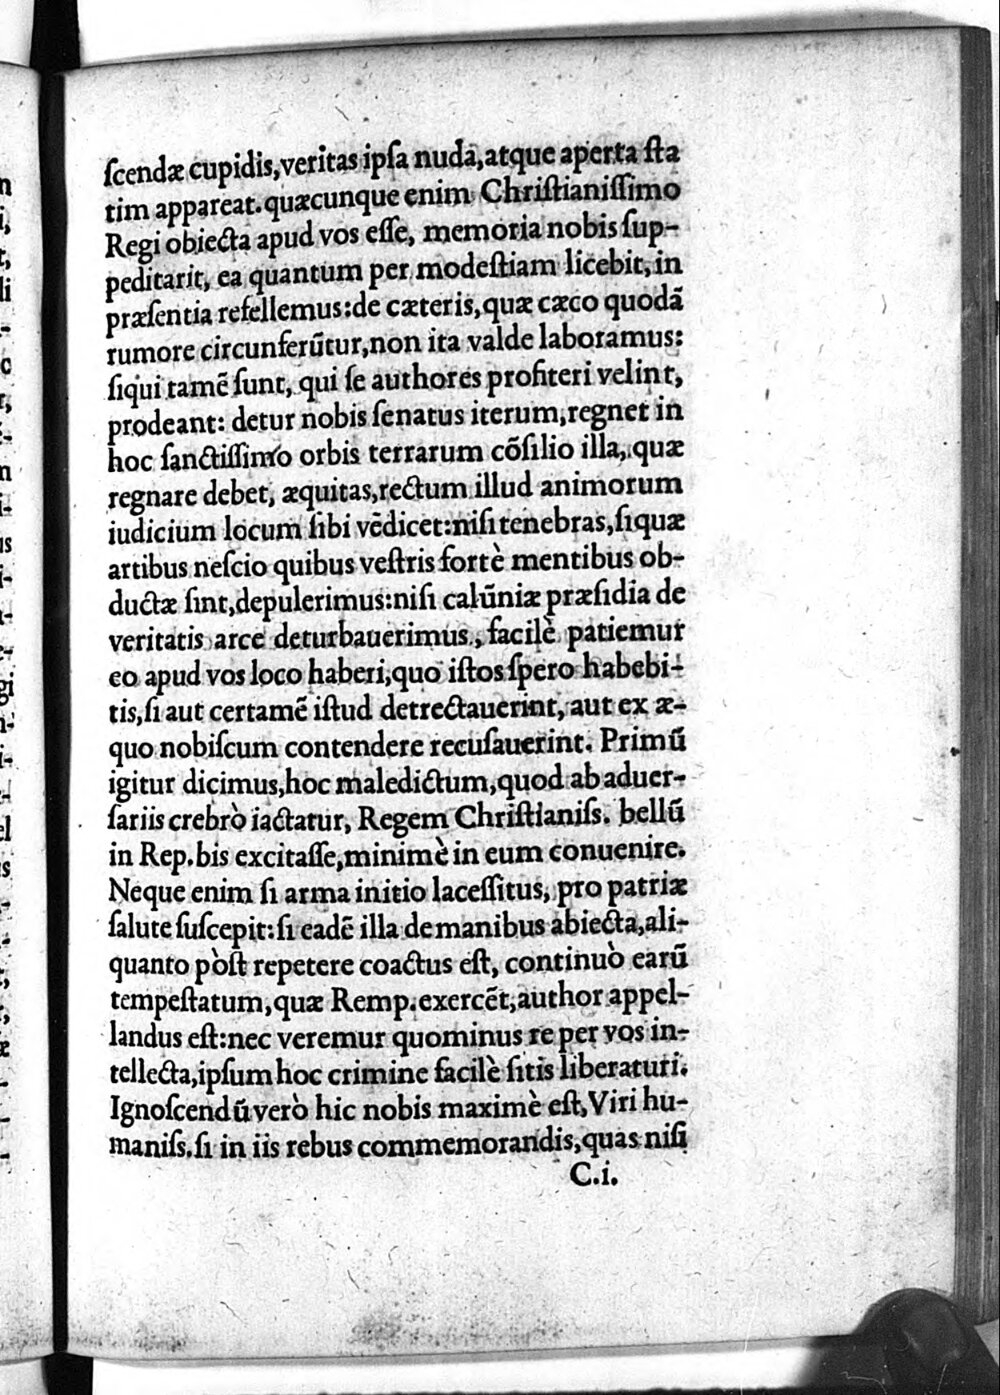 ſcendæ cupidis,veritas ipſa nuda,atque aperta ſta
tim appareat.quæcunque enim Chriſtianiſſimo
Regi obiecta apud vos eſſe, memoria nobis ſup-
peditarit, ea quantum per modeſtiam licebit,in
præſentia refellemus:de cæteris,quæ cæco quodã
rumore circunferũtur,non ita valde laboramus:
ſiqui tamẽ ſunt, qui ſe authores profiteri velint,
prodeant: detur nobis ſenatus iterum,regnet in
hoc ſanctiſſimo orbis terrarum cõſilio illa, quæ
regnare debet, æquitas,rectum illud animorum
iudicium locum ſibi vẽdicet:niſi tenebras,ſiquæ
artibus neſcio quibus veſtris fortè mentibus ob-
ductæ ſint,depulerimus:niſi calũniæ præſidia de
veritatis arce deturbauerimus, facilè patiemur
eo apud vos loco haberi,quo iſtos ſpero habebi-
tis,ſi aut certamẽ iſtud detrectauerint, aut ex æ-
quo nobiſcum contendere recuſauerint. Primũ
igitur dicimus,hoc maledictum,quod ab aduer-
ſariis crebrò iactatur, Regem Chriſtianiſs. bellũ
in Rep.bis excitaſſe,minimè in eum conuenire.
Neque enim ſi arma initio laceſſitus, pro patriæ
ſalute ſuſcepit:ſi eadẽ illa de manibus abiecta,ali-
quanto pòſt repetere coactus eſt, continuò earũ
tempeſtatum,quæ Remp.exercẽt,author appel-
landus eſt:nec veremur quominus re per vos in-
tellecta,ipſum hoc crimine facilè ſitis liberaturi.
Ignoſcendũ verò hic nobis maximè eſt,Viri hu-
maniſs.ſi in iis rebus commemorandis,quas niſi
C.i.